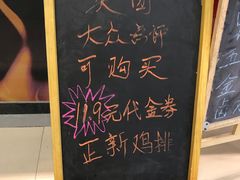 美团
大众点评
可购买
11.9元代金券
正新鸡排
五金店